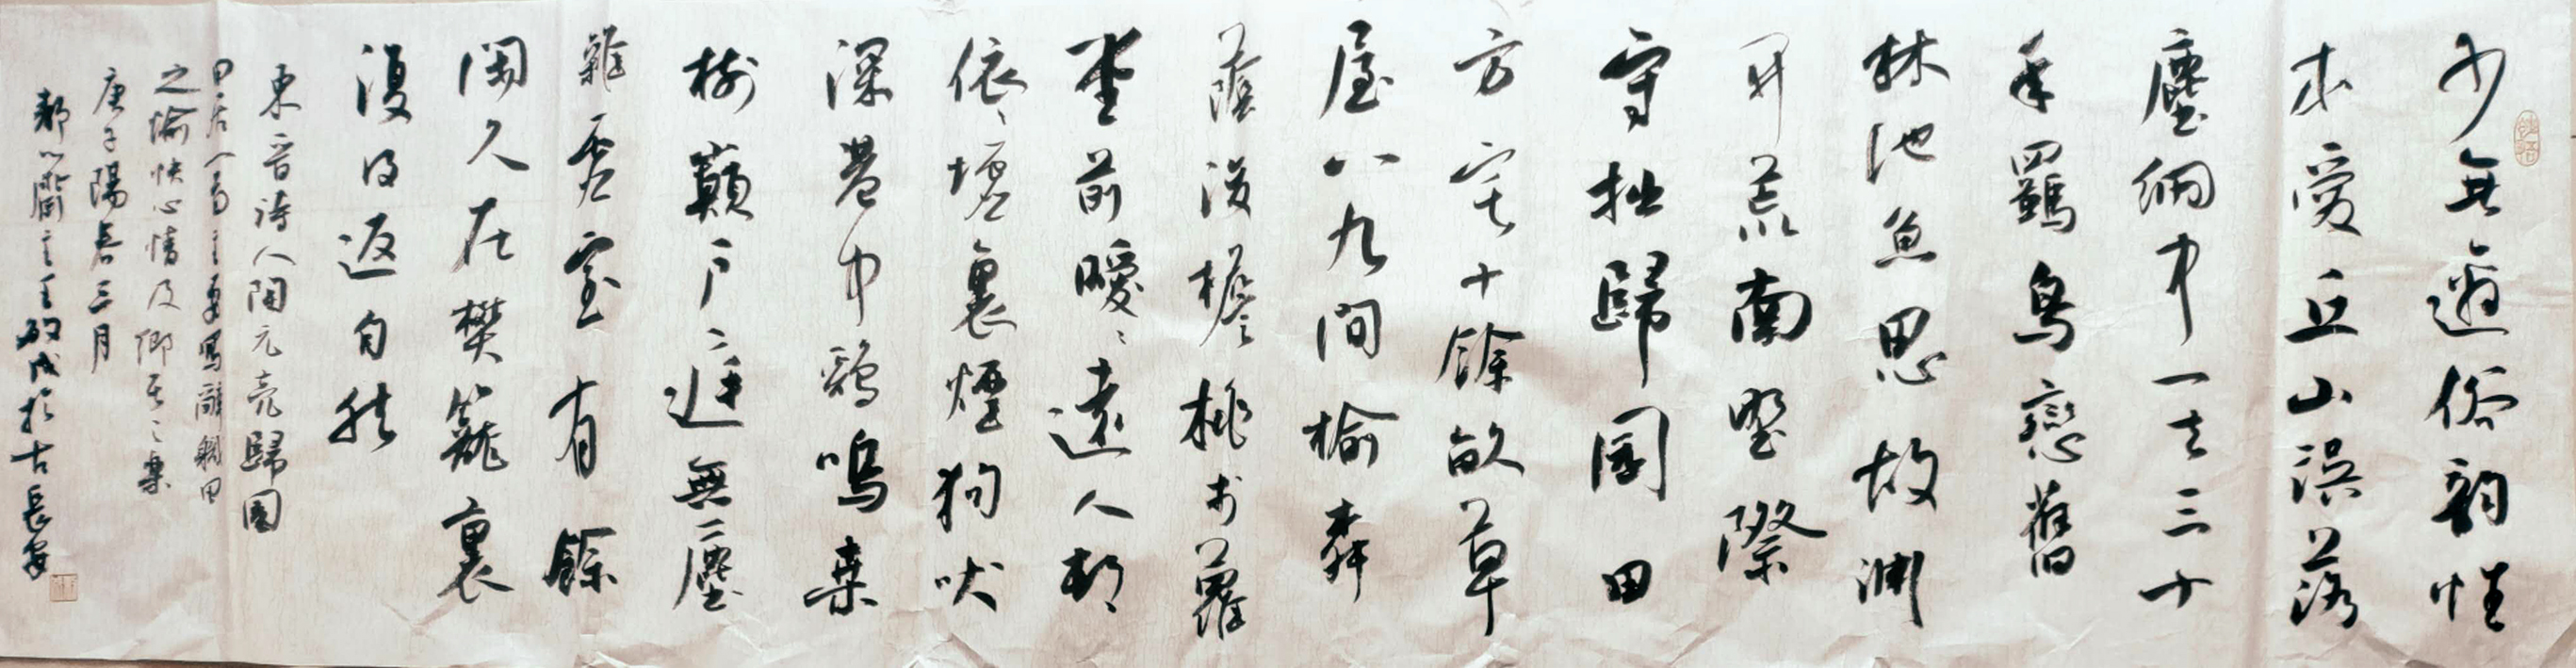 少無適俗韵性
本愛丘山誤落
塵網中一去三十
年羈鳥戀舊
林池魚思故淵
开荒南野際
守拙歸園田
方宅十餘畝草
屋八九間榆柳
蔭後檐桃李羅
堂前曖〻遠人村
依〻墟裏煙狗吠
深巷中鷄鳴桑
樹巔户庭無塵
雜虛室有餘
閑久在樊籠裏
復得返自然
東晉詩人陶元亮歸園
田居
之愉悦心情及
庚子陽春三月
於古長安